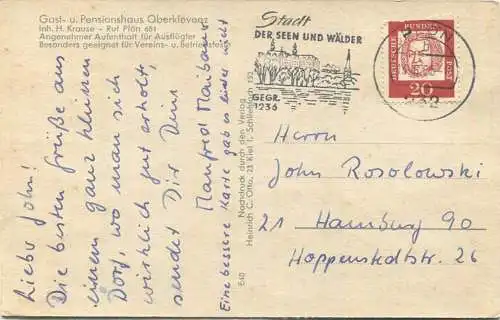 Gast- u. Pensionshaus Oberklevenz
Inh. H. Krause - Ruf Plön 681
Angenehmer Aufenthalt für Ausflügler
Besonders geeignet für Vereins- u. Betriebsfeste
Liebe John!
Die besten Grüße aus
einem ganz kleinen
Dorf, wo man sich
wirklich gut erholt,
sendet Dir Dein
Manfred
Eine bessere Karte gab es leider nicht
E40
Nachdruck durch den Verlag
Heinrich C. Otto, 23 Kiel 1, Schließfach 132
Stadt
DER SEEN UND WÄLDER
GEGR.
1236
DEUTSCHE
BUNDES
POST
20
Herrn
John Rosolowski
21 Hamburg 90
Hoppenstedtstr. 26